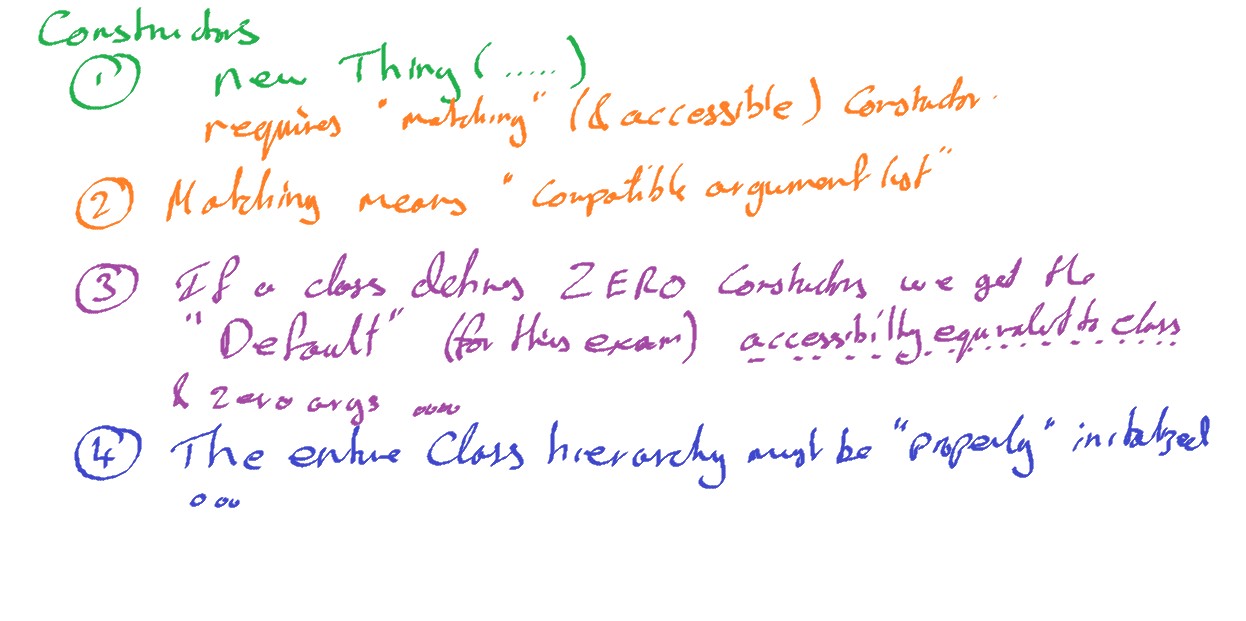 Constructors
① new Thing (.....)
requires "matching" (& accessible) Constructor.
② Matching means "Compatible argument list"
③ If a class defines ZERO Constructors we get the
"Default" (for this exam) accessibility equivalent to class
& zero args ....
④ The entire Class hierarchy must be "properly" initialized
...